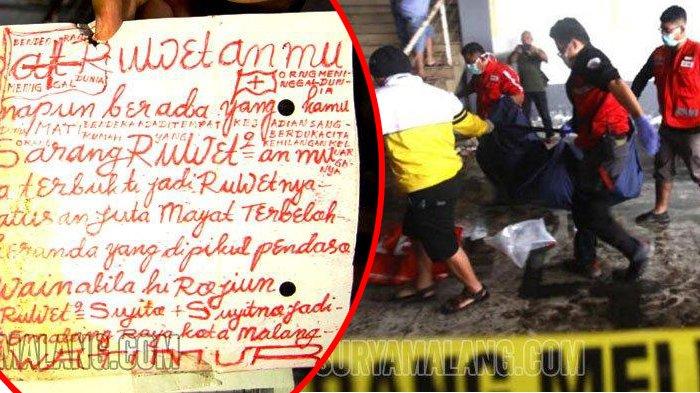 BENDERA ORANG
MENINGGAL DUNIA
RUWETanmu
ORNGMENI-
NGGALDUN-
IA
mapun berada yang kamu
MATI BENDERA
ADIANSANG-
RUMAH YANG
BERDUKACITA
KEHILANGAN KEL
UAR
GA-
NYA
Sarang RUWET = an mu
a terbukti jadi RUWETnya-
aturan juta Mayat Terbelah-
keranda yang dipikul pendasa
Wainalila hi Rojiun
RUWET = Sujito + Sujitno jadi-
Raya kota Malang-
A MALANG.COM
SURYAMALANG.COM
RANG MEL